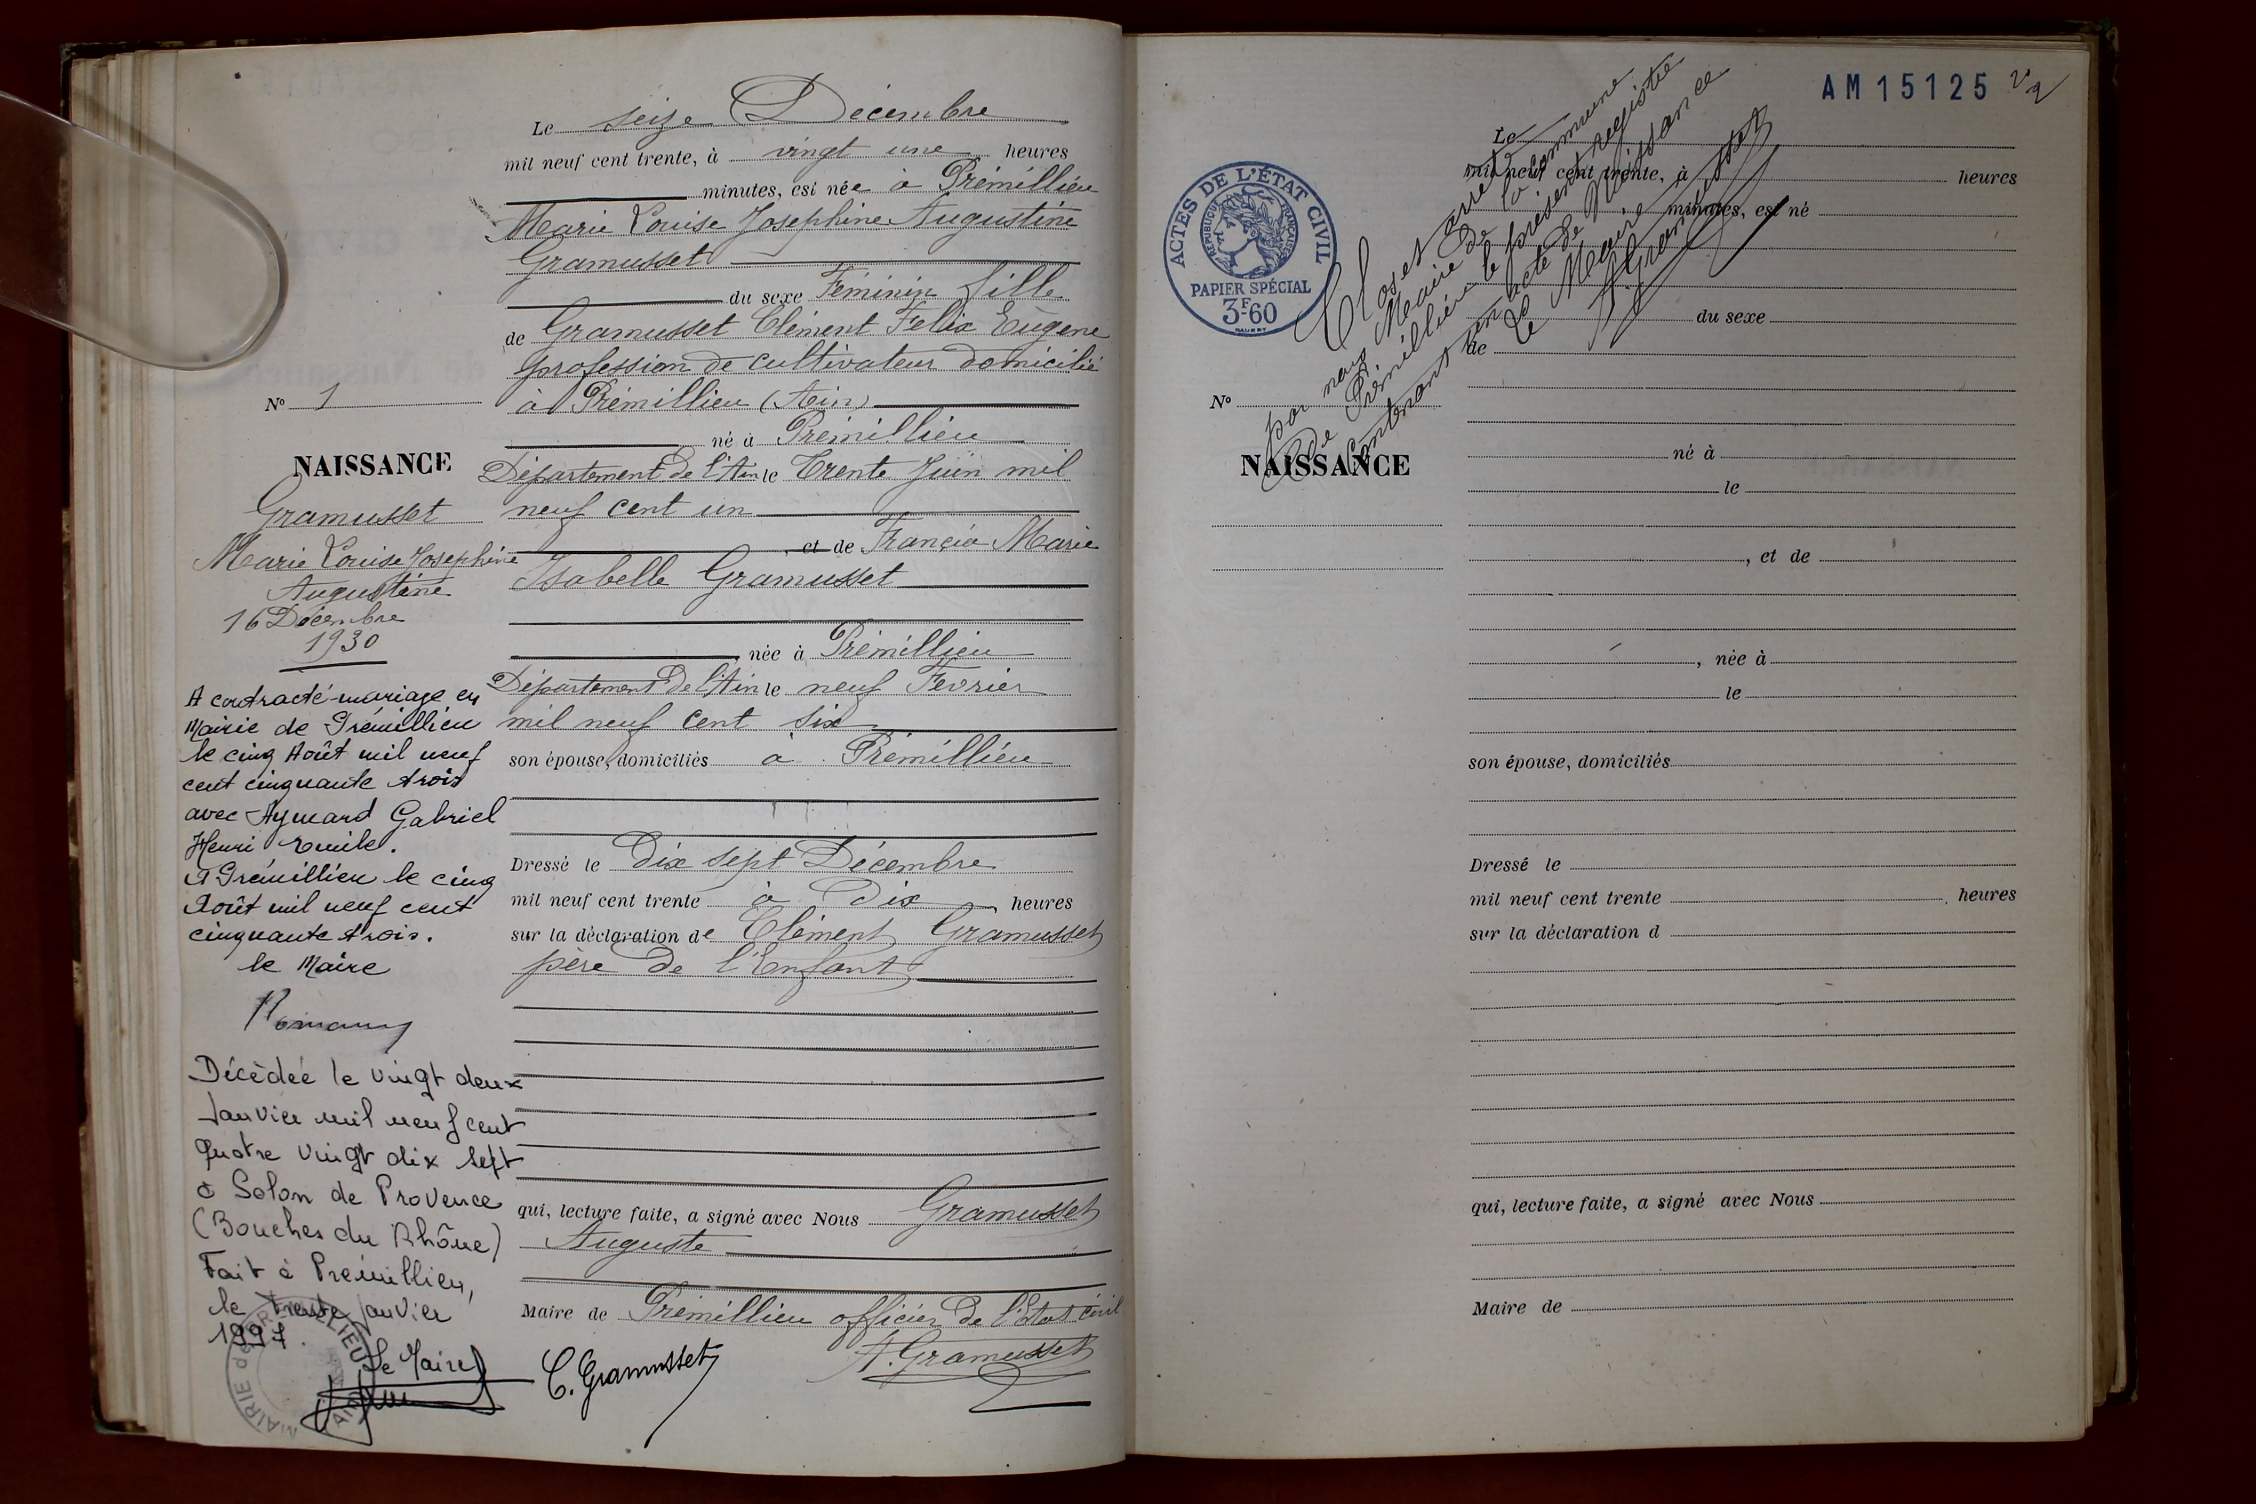 Le seize Décembre
mil neuf cent trente, à vingt une heures
minutes, est née à Prémillieu
Marie Louise Josephine Augustine
Gramusset
du sexe Féminin fille
de Gramusset Clément Felix Eugene
profession de cultivateur domicilié
à Prémillieu (Ain)
né à Prémillieu
Département de l'Ain le Trente Juin mil
neuf cent un
, et de Francia Marie
Isabelle Gramusset
, née à Prémillieu
Département de l'Ain le neuf Fevrier
mil neuf cent six
son épouse, domiciliés à Prémillieu
Dressé le dix sept Décembre
mil neuf cent trente à Dix heures
sur la déclaration de Clément Gramusset
père de l'Enfant
qui, lecture faite, a signé avec Nous Gramusset
Auguste
Maire de Prémillieu officier de l'Etat civil
C. Gramusset
A. Gramusset
No 1
NAISSANCE
Gramusset
Marie Louise Josephine
Augustine
16 Décembre
1930
A contracté mariage en
Mairie de Prémillieu
le cinq Août mil neuf
cent cinquante trois
avec Aymard Gabriel
Henri Emile.
A Prémillieu le cinq
Août mil neuf cent
cinquante trois.
le Maire
Décédée le vingt deux
Janvier mil neuf cent
quatre vingt dix sept
à Salon de Provence
(Bouches du Rhône)
Fait à Prémillieu,
le trente janvier
1997.
Le Maire
MAIRIE de PREMILLIEU
AIN
AM 15125
ACTES DE L'ÉTAT CIVIL
RÉPUBLIQUE FRANÇAISE
PAPIER SPÉCIAL
3F60
Clos et arrêté
par nous Maire de la commune
de Prémillieu le présent registre
Contenant un acte de Naissance
Le Maire
A. Gramusset
Le
mil neuf cent trente, à heures
minutes, est né
du sexe
de
No
NAISSANCE
né à
le
, et de
, née à
le
son épouse, domiciliés
Dressé le
mil neuf cent trente , heures
sur la déclaration d
qui, lecture faite, a signé avec Nous
Maire de